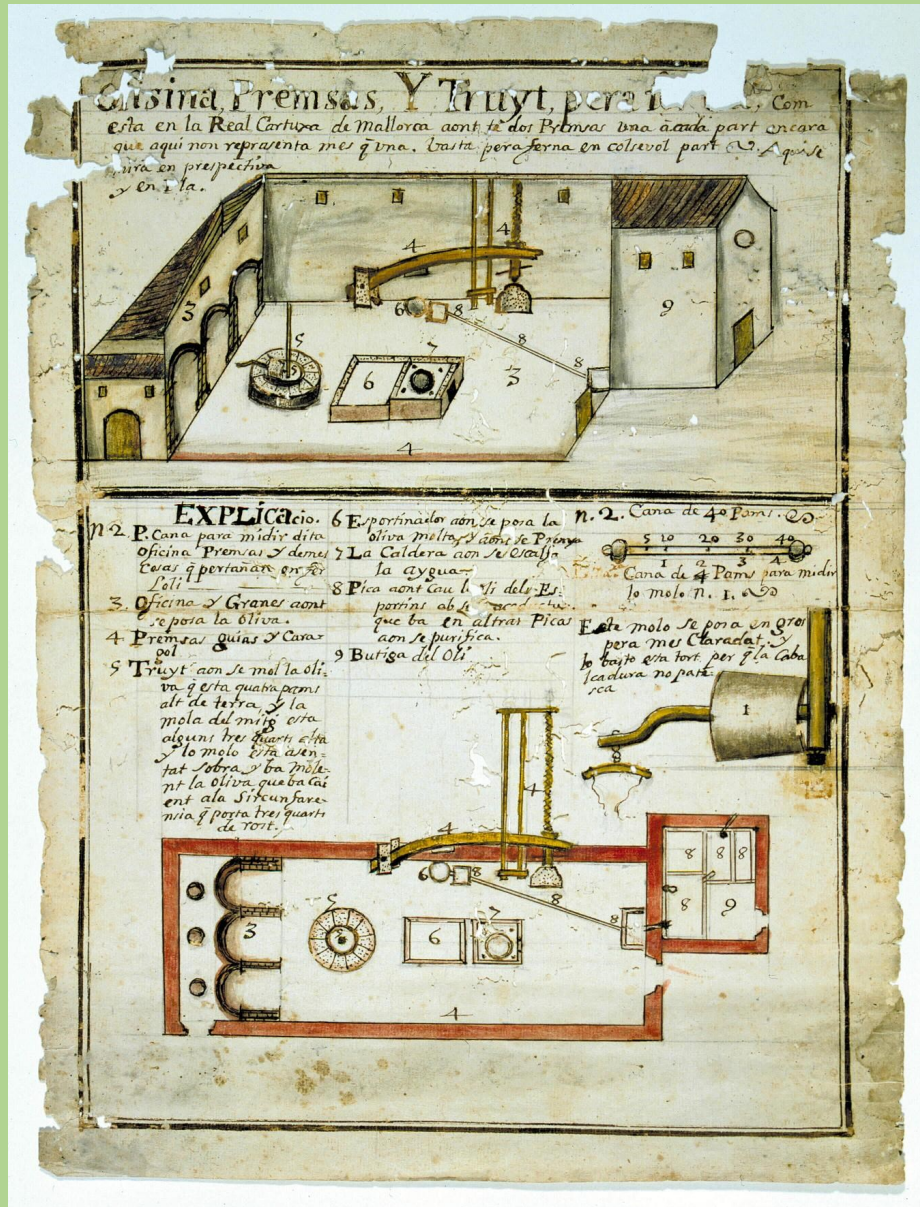 Premsas, Y Truyt, pera Com
esta en la Real Cartuxa de Mallorca aont te dos Premsas una a cada part encara
que aqui non representa mes q̃ una. basta pera ferna en colsevol part Aquise
mira en prespectiva
y en
4
4
3
9
6
8
5
8
7
3
8
6
4
EXPLICacio.
n 2. P. Cana para midir dita
Oficina Premsas y demes
Cosas q̃ pertañan en fer
Loli
3. Oficina y Granes aont
se posa la oliva.
4 Premsas guias y Cara-
gol
5 Truyt aon se mol la oli-
va q̃ esta quatra pams
alt de terra, y la
mola del mitg esta
alguns tres quarts alta
y lo molo esta asen-
tat sobra y ba mole-
nt la Oliva que ba cai
ent ala Sircunfare-
nsia q̃ porta tres quarts
de rost.
6 Esportinador aon se posa la
oliva molta y aons se Prensa
7 La Caldera aon se escalfa
la aygua
8 Pica aont Cau loli dels Es-
portins ab
que ba en altras Picas
aon se purifica.
9 Butiga del Oli
n. 2. Cana de 40 Pams.
5 10 20 30 40
1 2 3 4
Cana de 4 Pams para midir
lo molo n. 1.
Este molo se posa en gros
pera mes Claradat. y
lo basto esta tort per q̃ la Caba
lcadura no pate
sca
1
8
4
4
8 8 8
6 8
5
3
8 9
7
6
8
8
4